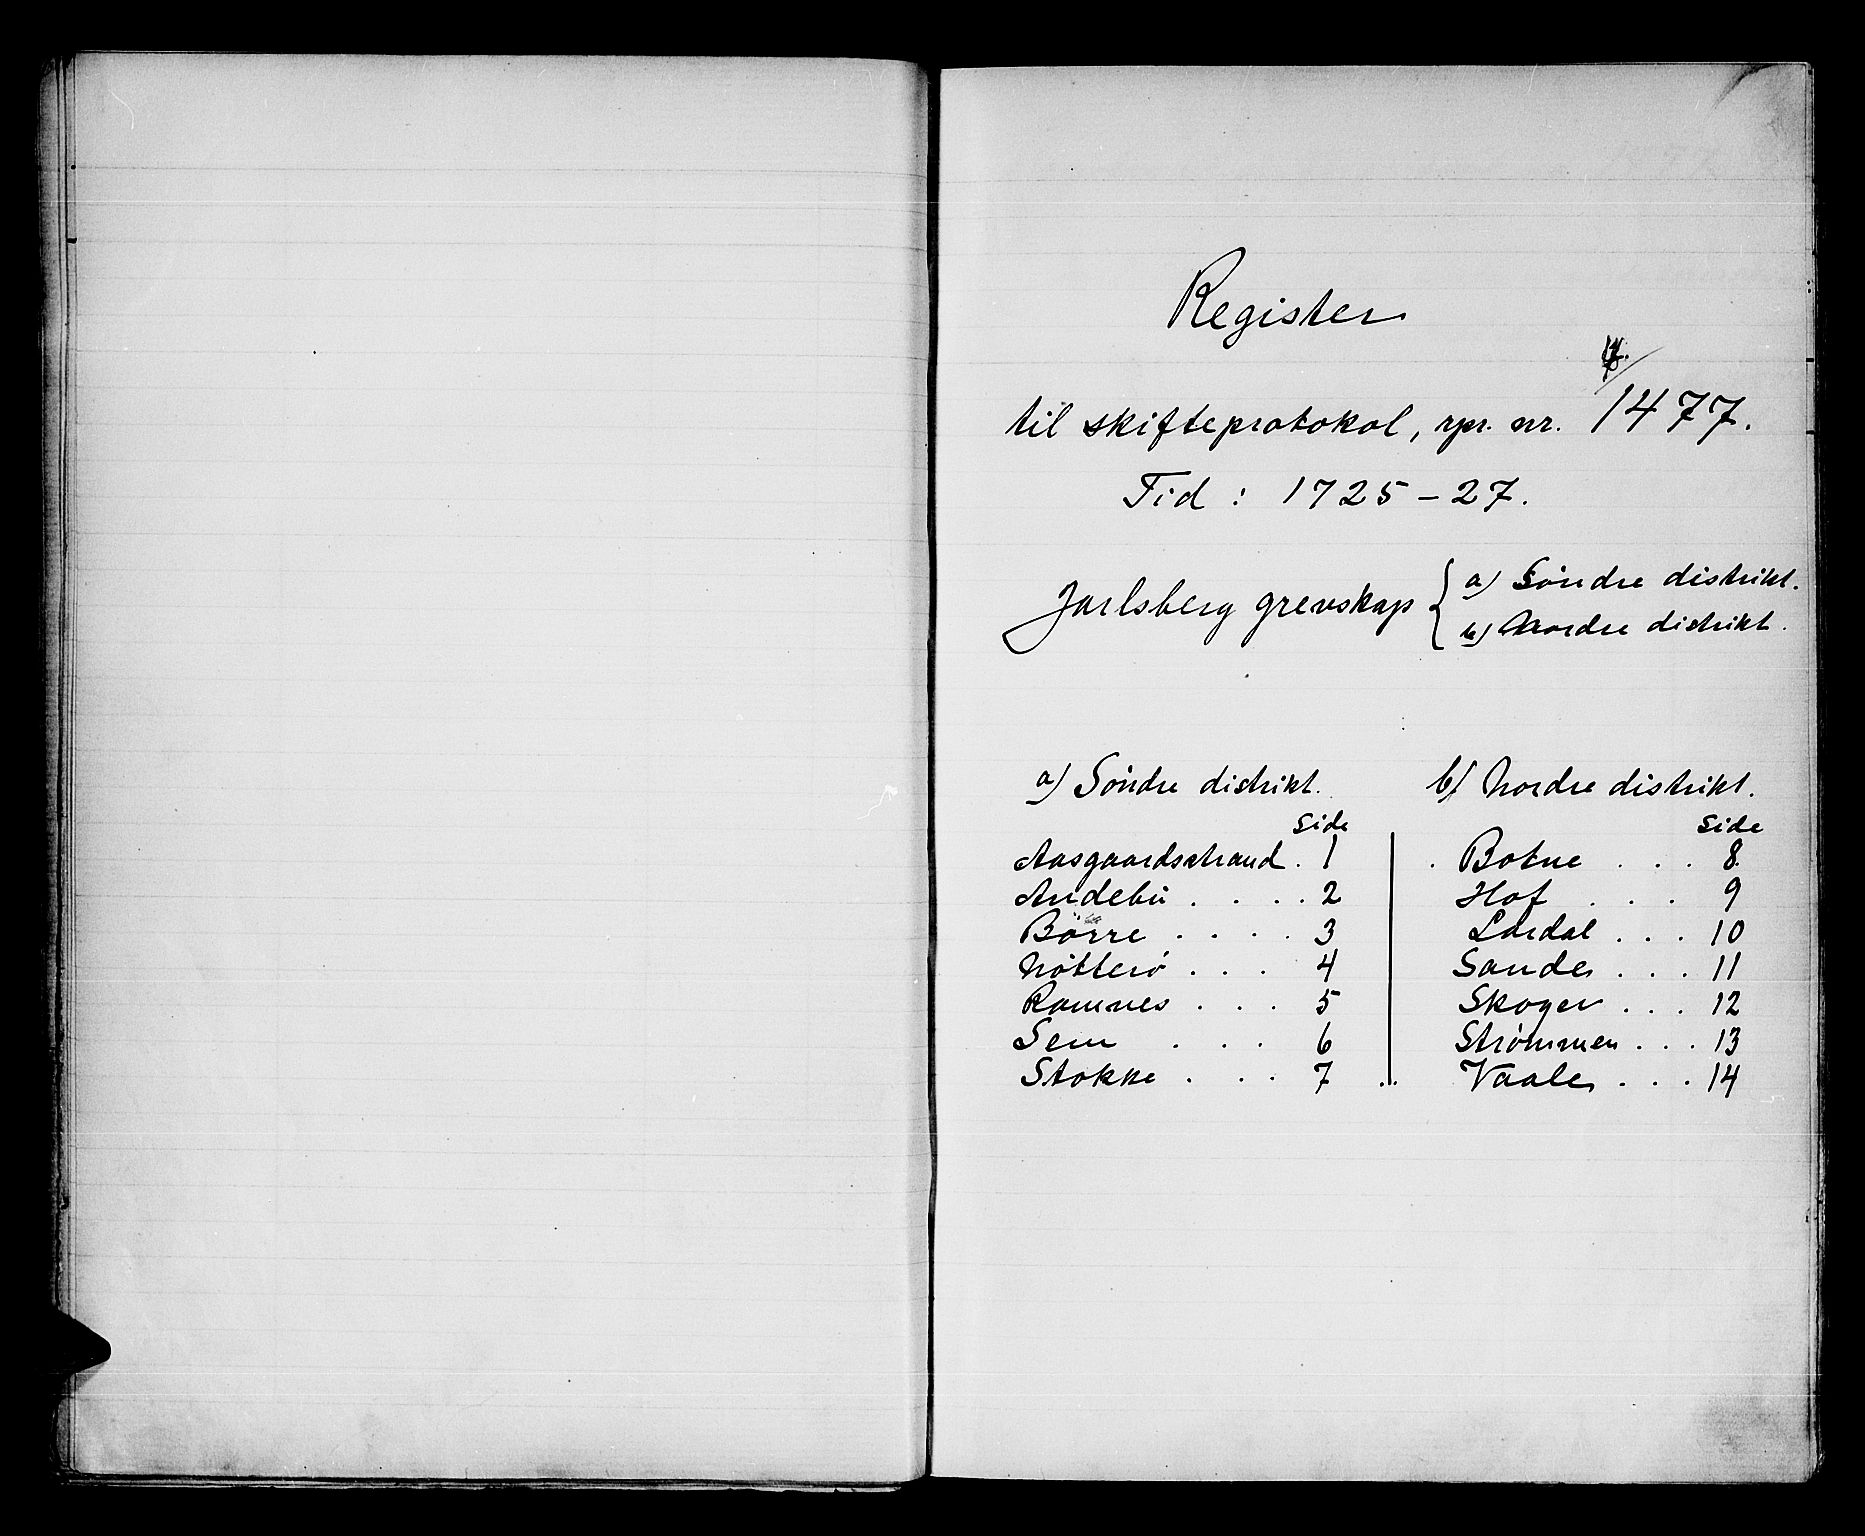 Register
til skifteprotokol, rpr. nr. 1477.
Tid : 1725 – 27.
Jarlsberg grevskap { a) Söndre distrikt.
b) Nordre distrikt.
a) Söndre distrikt.
Side
Aasgaardsstrand . 1
Andebu . . . . 2
Börre . . . . 3
Nötterö . . . 4
Ramnes . . . 5
Sem . . . 6
Stokke . . . 7
b) Nordre distrikt.
Side
Botne . . . 8
Hof . . . 9
Lardal . . . 10
Sande . . . 11
Skoger . . . 12
Strømmen . . . 13
Vaale . . . 14